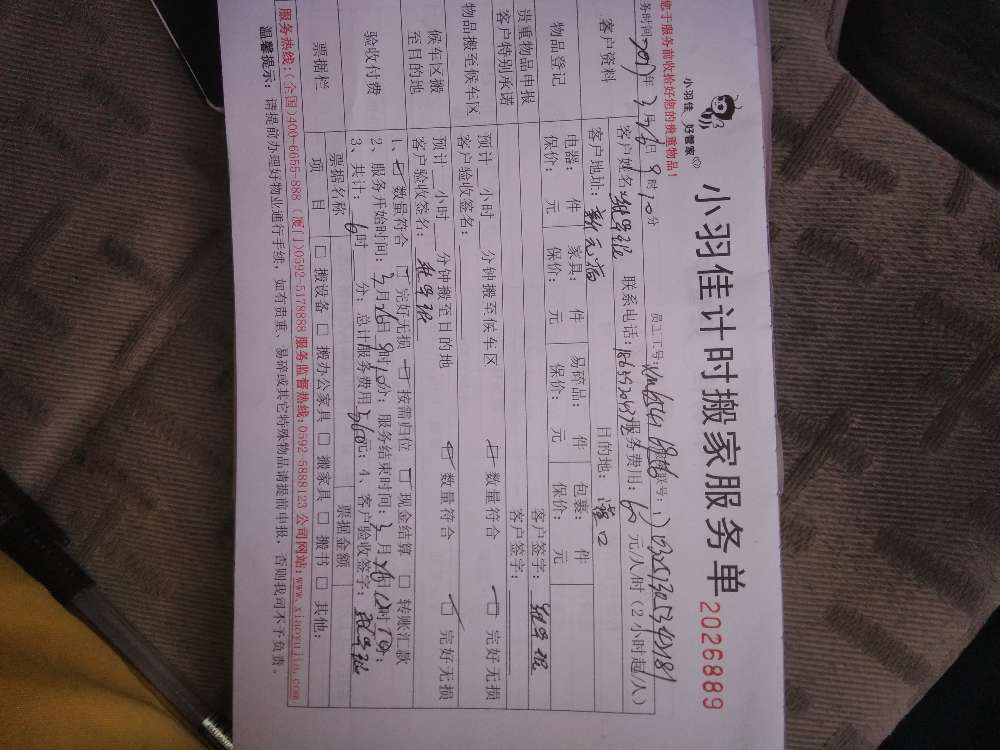 小羽佳
好管家
小羽佳计时搬家服务单
2026889
您于服务前收拾好您的贵重物品!
务时间: 年3月26日9时10分
员工工号:
客户资料
客户姓名: 联系电话: 服务费用:60元/人/时(2小时起/人)
客户地址: 目的地:
物品登记
电器: 件 家具: 件 易碎品: 件 包裹: 件
保价: 元 保价: 元 保价: 元 保价: 元
贵重物品申报 客户签字:
客户特别承诺 客户签字:
物品搬至候车区
预计 小时 分钟搬至候车区 数量符合 完好无损
客户验收签名:
候车区搬至目的地
预计 小时 分钟搬至目的地 数量符合 完好无损
客户验收签名:
验收付费
1、数量符合 完好无损 按需归位 现金结算 转账汇款
2、服务开始时间:3月26日9时10分; 服务结束时间:3月26日 时 分;
3、共计: 6时 分; 总计服务费用360元; 4、客户验收签字:
票据栏
票据名称 票据金额
项目 搬设备 搬办公家具 搬家具 搬书 其他:
服务热线:(全国)400-6055-888 (厦门)0592-5178888 服务监督热线:0592-5888123 公司网站:www.xiaoyujia.com
温馨提示: 请提前办理好物业通行手续,如有贵重、易碎或其它特殊物品请提前申报,否则我司不予负责。